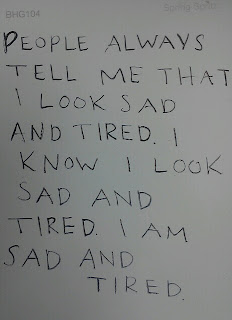 BHG164
PEOPLE ALWAYS
TELL ME THAT
I LOOK SAD
AND TIRED. I
KNOW I LOOK
SAD AND
TIRED. I AM
SAD AND
TIRED.